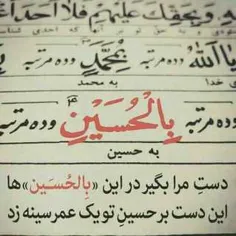 وَبِحَقِّكَ عَلَيْهِمْ فَلا اَحَدَ اَ
يا اَللهُ
وده مرتبه بِمُحَمَّدٍ وده مرتبه
خدا به محمد
وده مرتبه بِالْحُسَيْنِ وده مرتبه
به حسین
دستِ مرا بگیر در این «بِالحُسَین»ها
این دست بر حسینِ تو یک عمر سینه زد